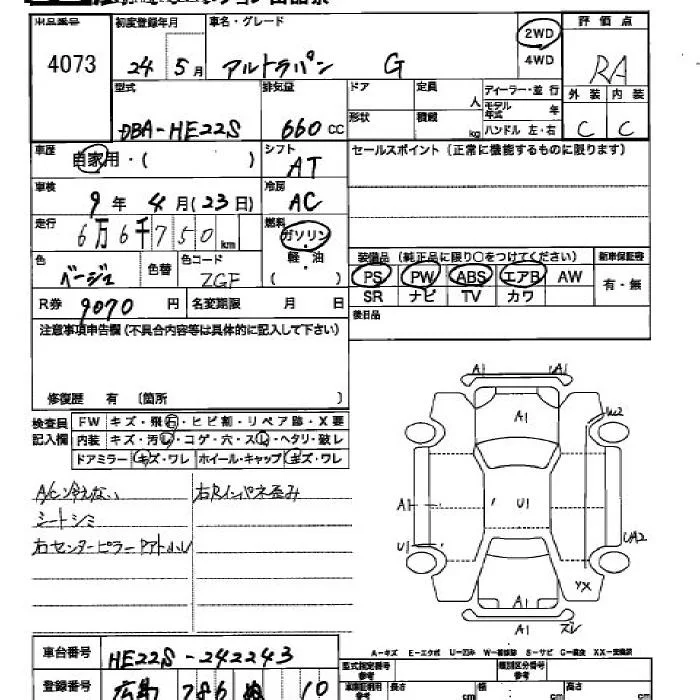 出品番号 初度登録年月 車名・グレード 2WD 評価点
4073 24年5月 アルトラパン G 4WD RA
型式 排気量 ドア 定員 人 ディーラー・並行 外装 内装
DBA-HE22S 660cc 形状 積載 kg モデル年式 年 ハンドル 左・右 C C
車歴 自家用・( ) シフト AT セールスポイント(正常に機能するものに限ります)
車検 9年4月(23日) 冷房 AC
走行 6万6千750km 燃料 ガソリン
色 ベージュ 色替 色コード ZGF 軽油 ( ) 装備品(純正品に限り○をつけてください) 新車保証書
PS PW ABS エアB AW 有・無
R券 9070円 名変期限 月 日 SR ナビ TV カワ
注意事項申告欄(不具合内容等は具体的に記入して下さい) 後日品
修復歴 有 〔箇所 〕
検査員 FW キズ・飛石・ヒビ割・リペア跡・X要
記入欄 内装 キズ・汚レ・コゲ・穴・スレ・ヘタリ・破レ
ドアミラー キズ・ワレ ホイール・キャップ キズ・ワレ
A/C冷えない 右Rインパネ歪み
シートシミ
右センターピラーアト小
A1 A1
A1 W2
A1 U1
U1 UA2
YX
A1
A1 ズレ
A-キズ E-エクボ U-凹ミ S-サビ
車台番号 HE22S-242243 型式指定番号 類別区分番号
登録番号 広島 786 ぬ 10 長さ cm 幅 cm 高さ cm